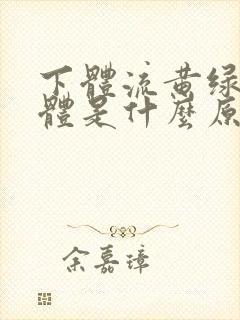 下體流黃绿
體是什麼原
余嘉璋